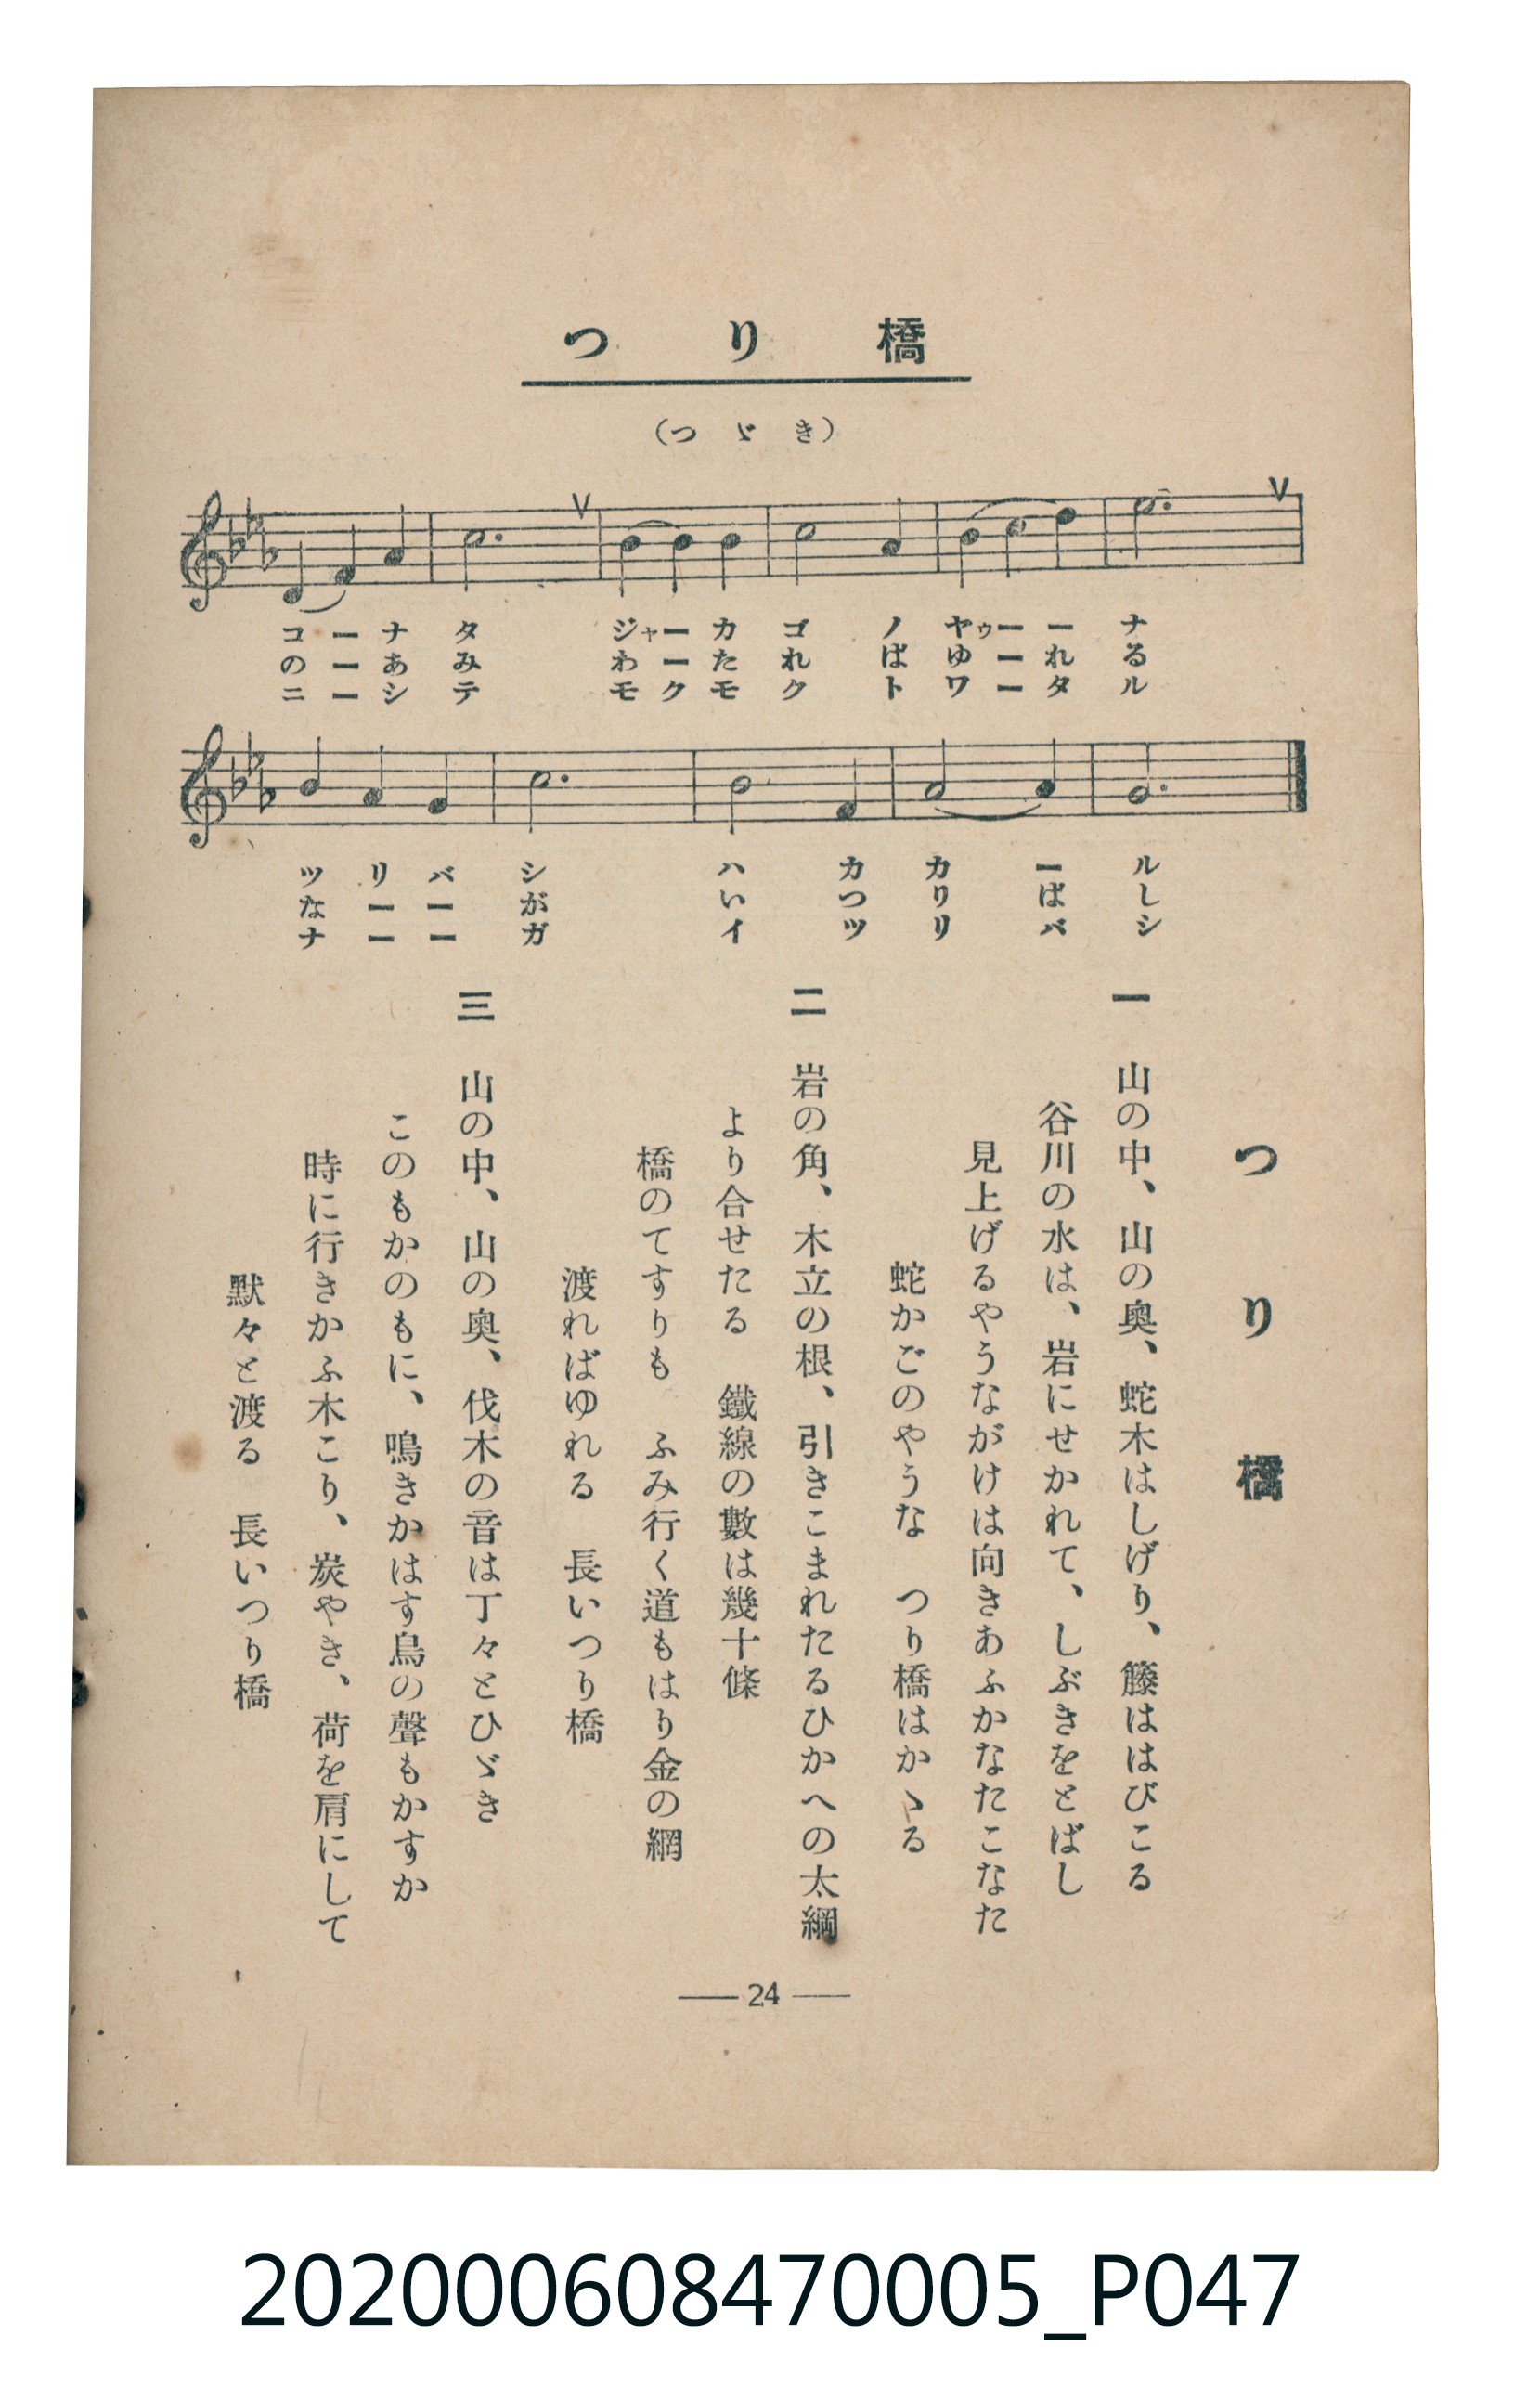 つり橋
（つゞき）
コーナタ ジャーカゴノヤゥーーナ
のーあみ わーたれば ゆーれる
ニーシテ モクモクト ワータル
ツリバシ ハカカール
なーーが いつりばし
ナーーガ イツリバシ
つり橋
一 山の中、山の奥、蛇木はしげり、籐ははびこる
谷川の水は、岩にせかれて、しぶきをとばし
見上げるやうながけは向きあふかなたこなた
蛇かごのやうな つり橋はかゝる
二 岩の角、木立の根、引きこまれたるひかへの太綱
より合せたる 鐵線の數は幾十條
橋のてすりも ふみ行く道もはり金の網
渡ればゆれる 長いつり橋
三 山の中、山の奥、伐木の音は丁々とひゞき
このもかのもに、鳴きかはす鳥の聲もかすか
時に行きかふ木こり、炭やき、荷を肩にして
默々と渡る 長いつり橋
24
202000608470005_P047